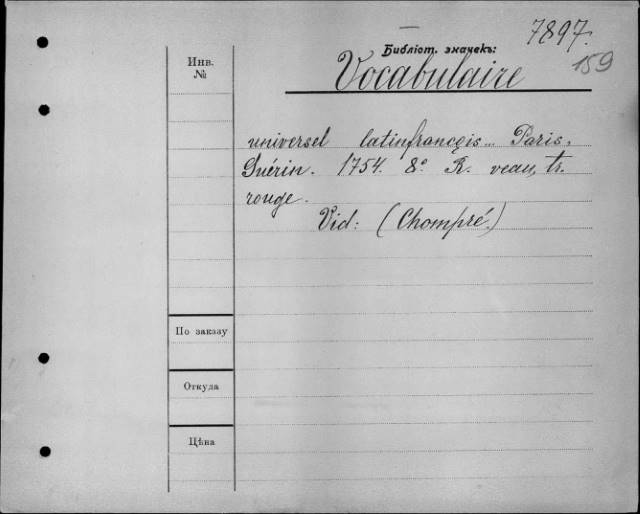 7897.
Библіот. значекъ:
159
Инв.
№
Vocabulaire
universel latinfrançois... Paris,
Guérin. 1754. 8° R. veau, tr.
rouge.
Vid: (Chompré.)
По заказу
Откуда
Цѣна